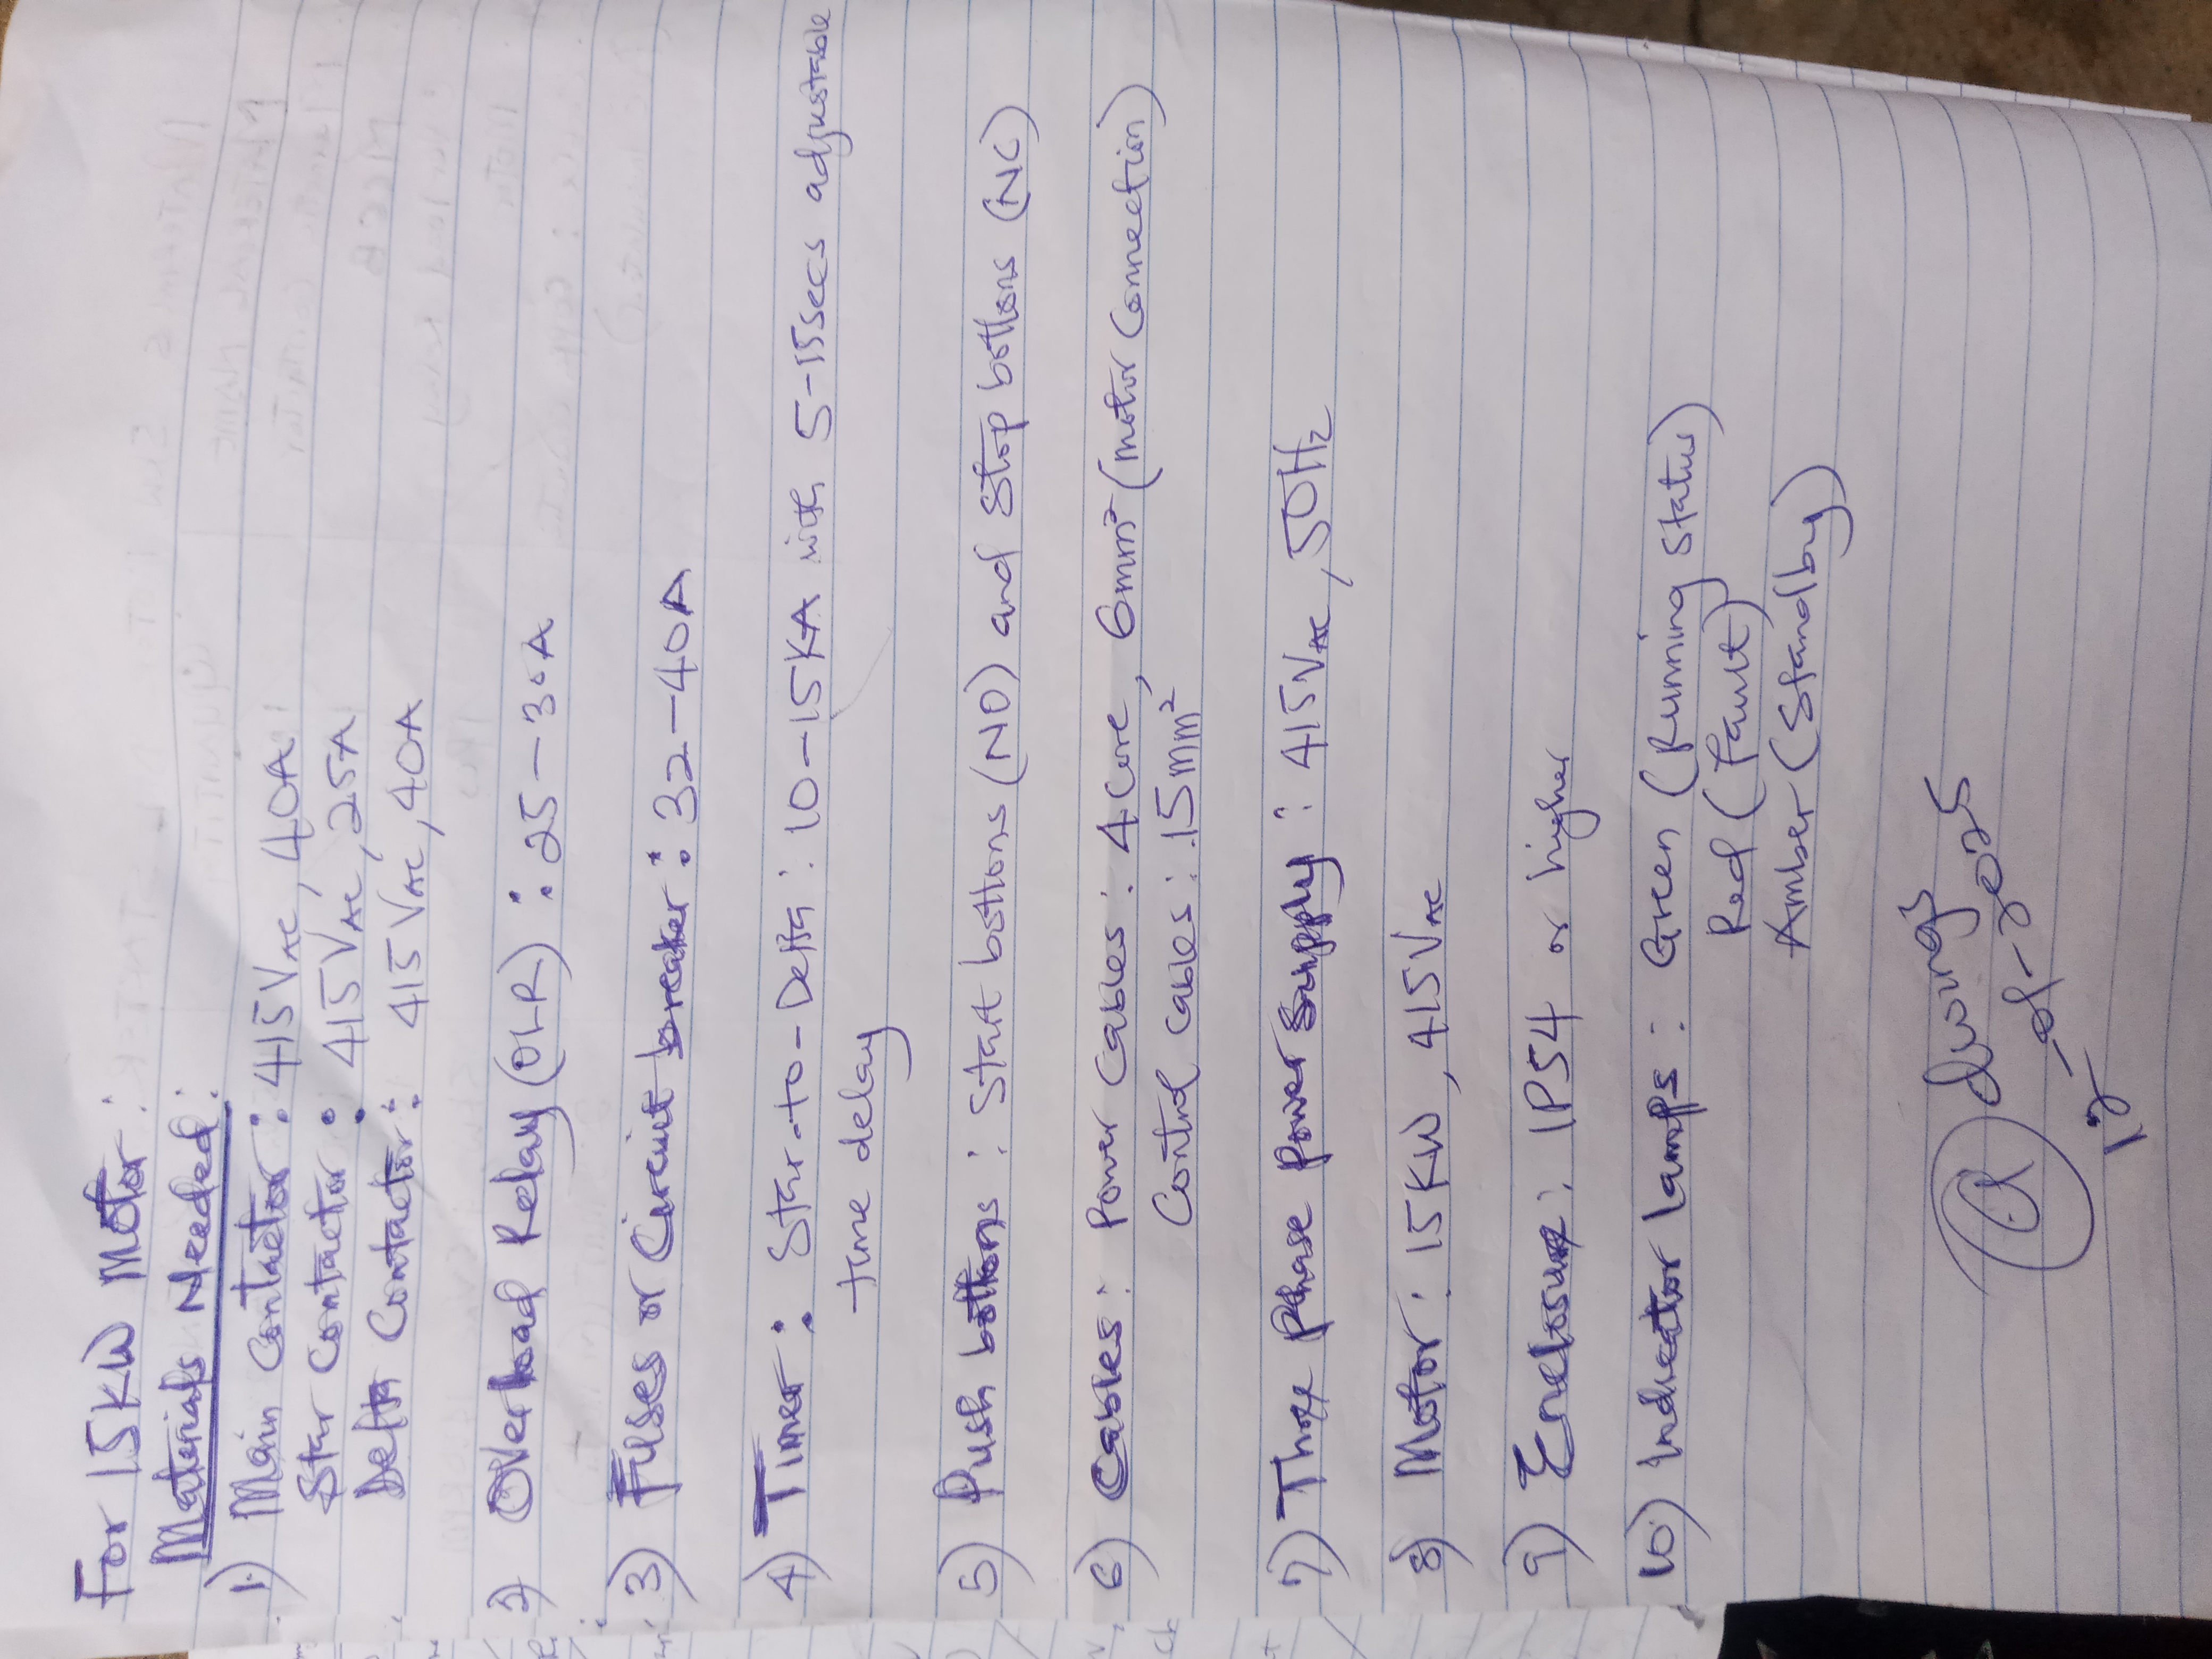 For 15KW Motor:
Materials Needed:
1) Main Contactor: 415VAC, 40A
Star Contactor: 415VAC, 25A
Delta Contactor: 415VAC, 40A
2) Overload Relay (OLR): 25-30A
3) Fuses or Circuit breaker: 32-40A
4) Timer: Star-to-Delta: 10-15KA with 5-15secs adjustable
time delay
5) Push bottons: Start bottons (NO) and Stop bottons (NC)
6) Cables: Power Cables: 4 Core, 6mm² (motor Connection)
Control cables: .15mm²
7) Three Phase Power Supply: 415VAC, 50Hz
8) Motor: 15KW, 415VAC
9) Enclosure: IP54 or higher
10) Indicator lamps: Green (Running status)
Red (Fault)
Amber (Standby)